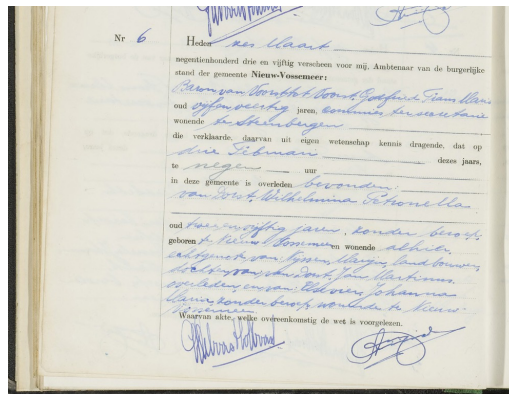 Nr 6
Heden zes Maart
negentienhonderd drie en vijftig verscheen voor mij, Ambtenaar van de burgerlijke
stand der gemeente Nieuw-Vossemeer:
Baron van Voorst tot Voorst, Godfried Frans Maria
oud vijfenveertig jaren, commies ter secretarie
wonende te Steenbergen
die verklaarde, daarvan uit eigen wetenschap kennis dragende, dat op
drie Februari dezes jaars,
te negen uur
in deze gemeente is overleden bevonden:
van Dorst, Wilhelmina Petronella
oud tweeenvijftig jaren, zonder beroep
geboren te Nieuw-Vossemeer en wonende alhier
echtgenote van Marijn, landbouwer,
dochter van van Dorst, Jan Martinus
overleden, en van Johanna
Maria, zonder beroep, wonende te Nieuw-
Vossemeer.
Waarvan akte, welke overeenkomstig de wet is voorgelezen.